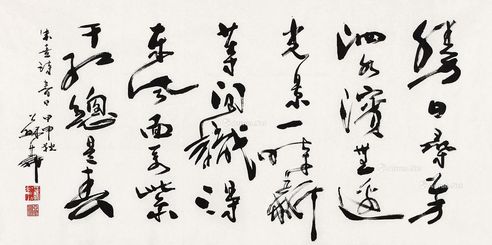 勝日尋芳
泗水濱無邊
光景一時新
等閒識得
東風面萬紫
千紅總是春
朱熹詩春日 甲申秋